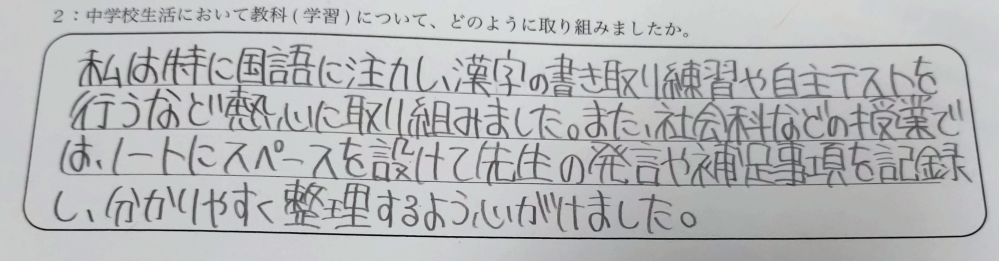 2：中学校生活において教科(学習)について、どのように取り組みましたか。
私は特に国語に注力し、漢字の書き取り練習や自主テストを
行うなど熱心に取り組みました。また、社会科などの授業で
は、ノートにスペースを設けて先生の発言や補足事項を記録
し、分かりやすく整理するよう心がけました。